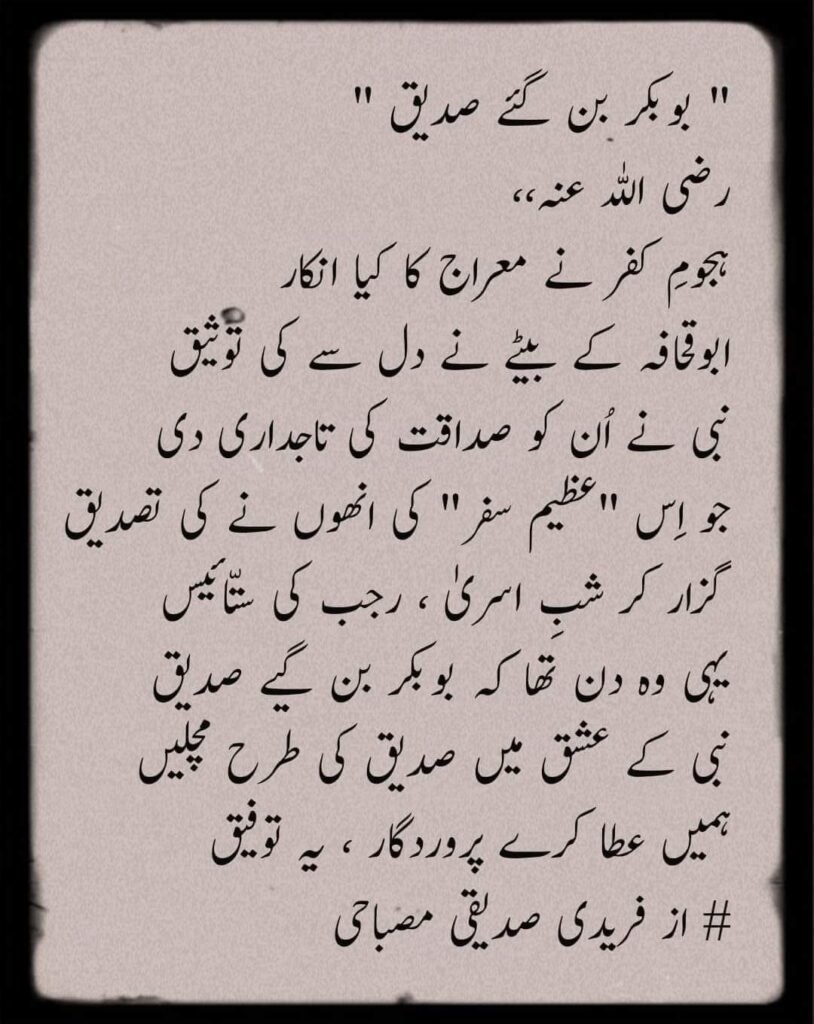 " بوبکر بن گئے صدیق "
رضی اللہ عنہ،،
ہجومِ کفر نے معراج کا کیا انکار
ابوقحافہ کے بیٹے نے دل سے کی توثیق
نبی نے اُن کو صداقت کی تاجداری دی
جو اِس "عظیم سفر" کی انھوں نے کی تصدیق
گزار کر شبِ اسریٰ ، رجب کی ستّائیس
یہی وہ دن تھا کہ بوبکر بن گیے صدیق
نبی کے عشق میں صدیق کی طرح مچلیں
ہمیں عطا کرے پروردگار ، یہ توفیق
# از فریدی صدیقی مصباحی